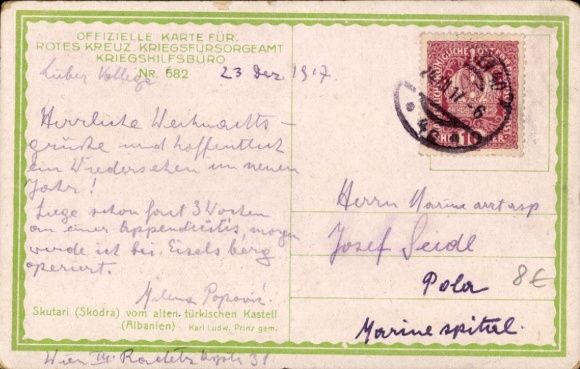 OFFIZIELLE KARTE FÜR
ROTES KREUZ, KRIEGSFÜRSORGEAMT
KRIEGSHILFSBÜRO
NR. 682
23 Dez. 1917
Lieber Kollege
Herrliche Weihnachts-
grüsse und hoffentlich
ein Wiedersehen im neuen
Jahr!
Liege schon fast 3 Wochen
an einer Appendicitis, morgen
werde ich bei Eiselsberg
operiert.
Milena Popović.
Skutari (Skodra) vom alten, türkischen Kastell
(Albanien) Karl Ludw. Prinz gem.
Wien III. Radetzkystr 31
10
Herrn Marinearztasp
Josef Seidl
Pola
8€
Marinespital.